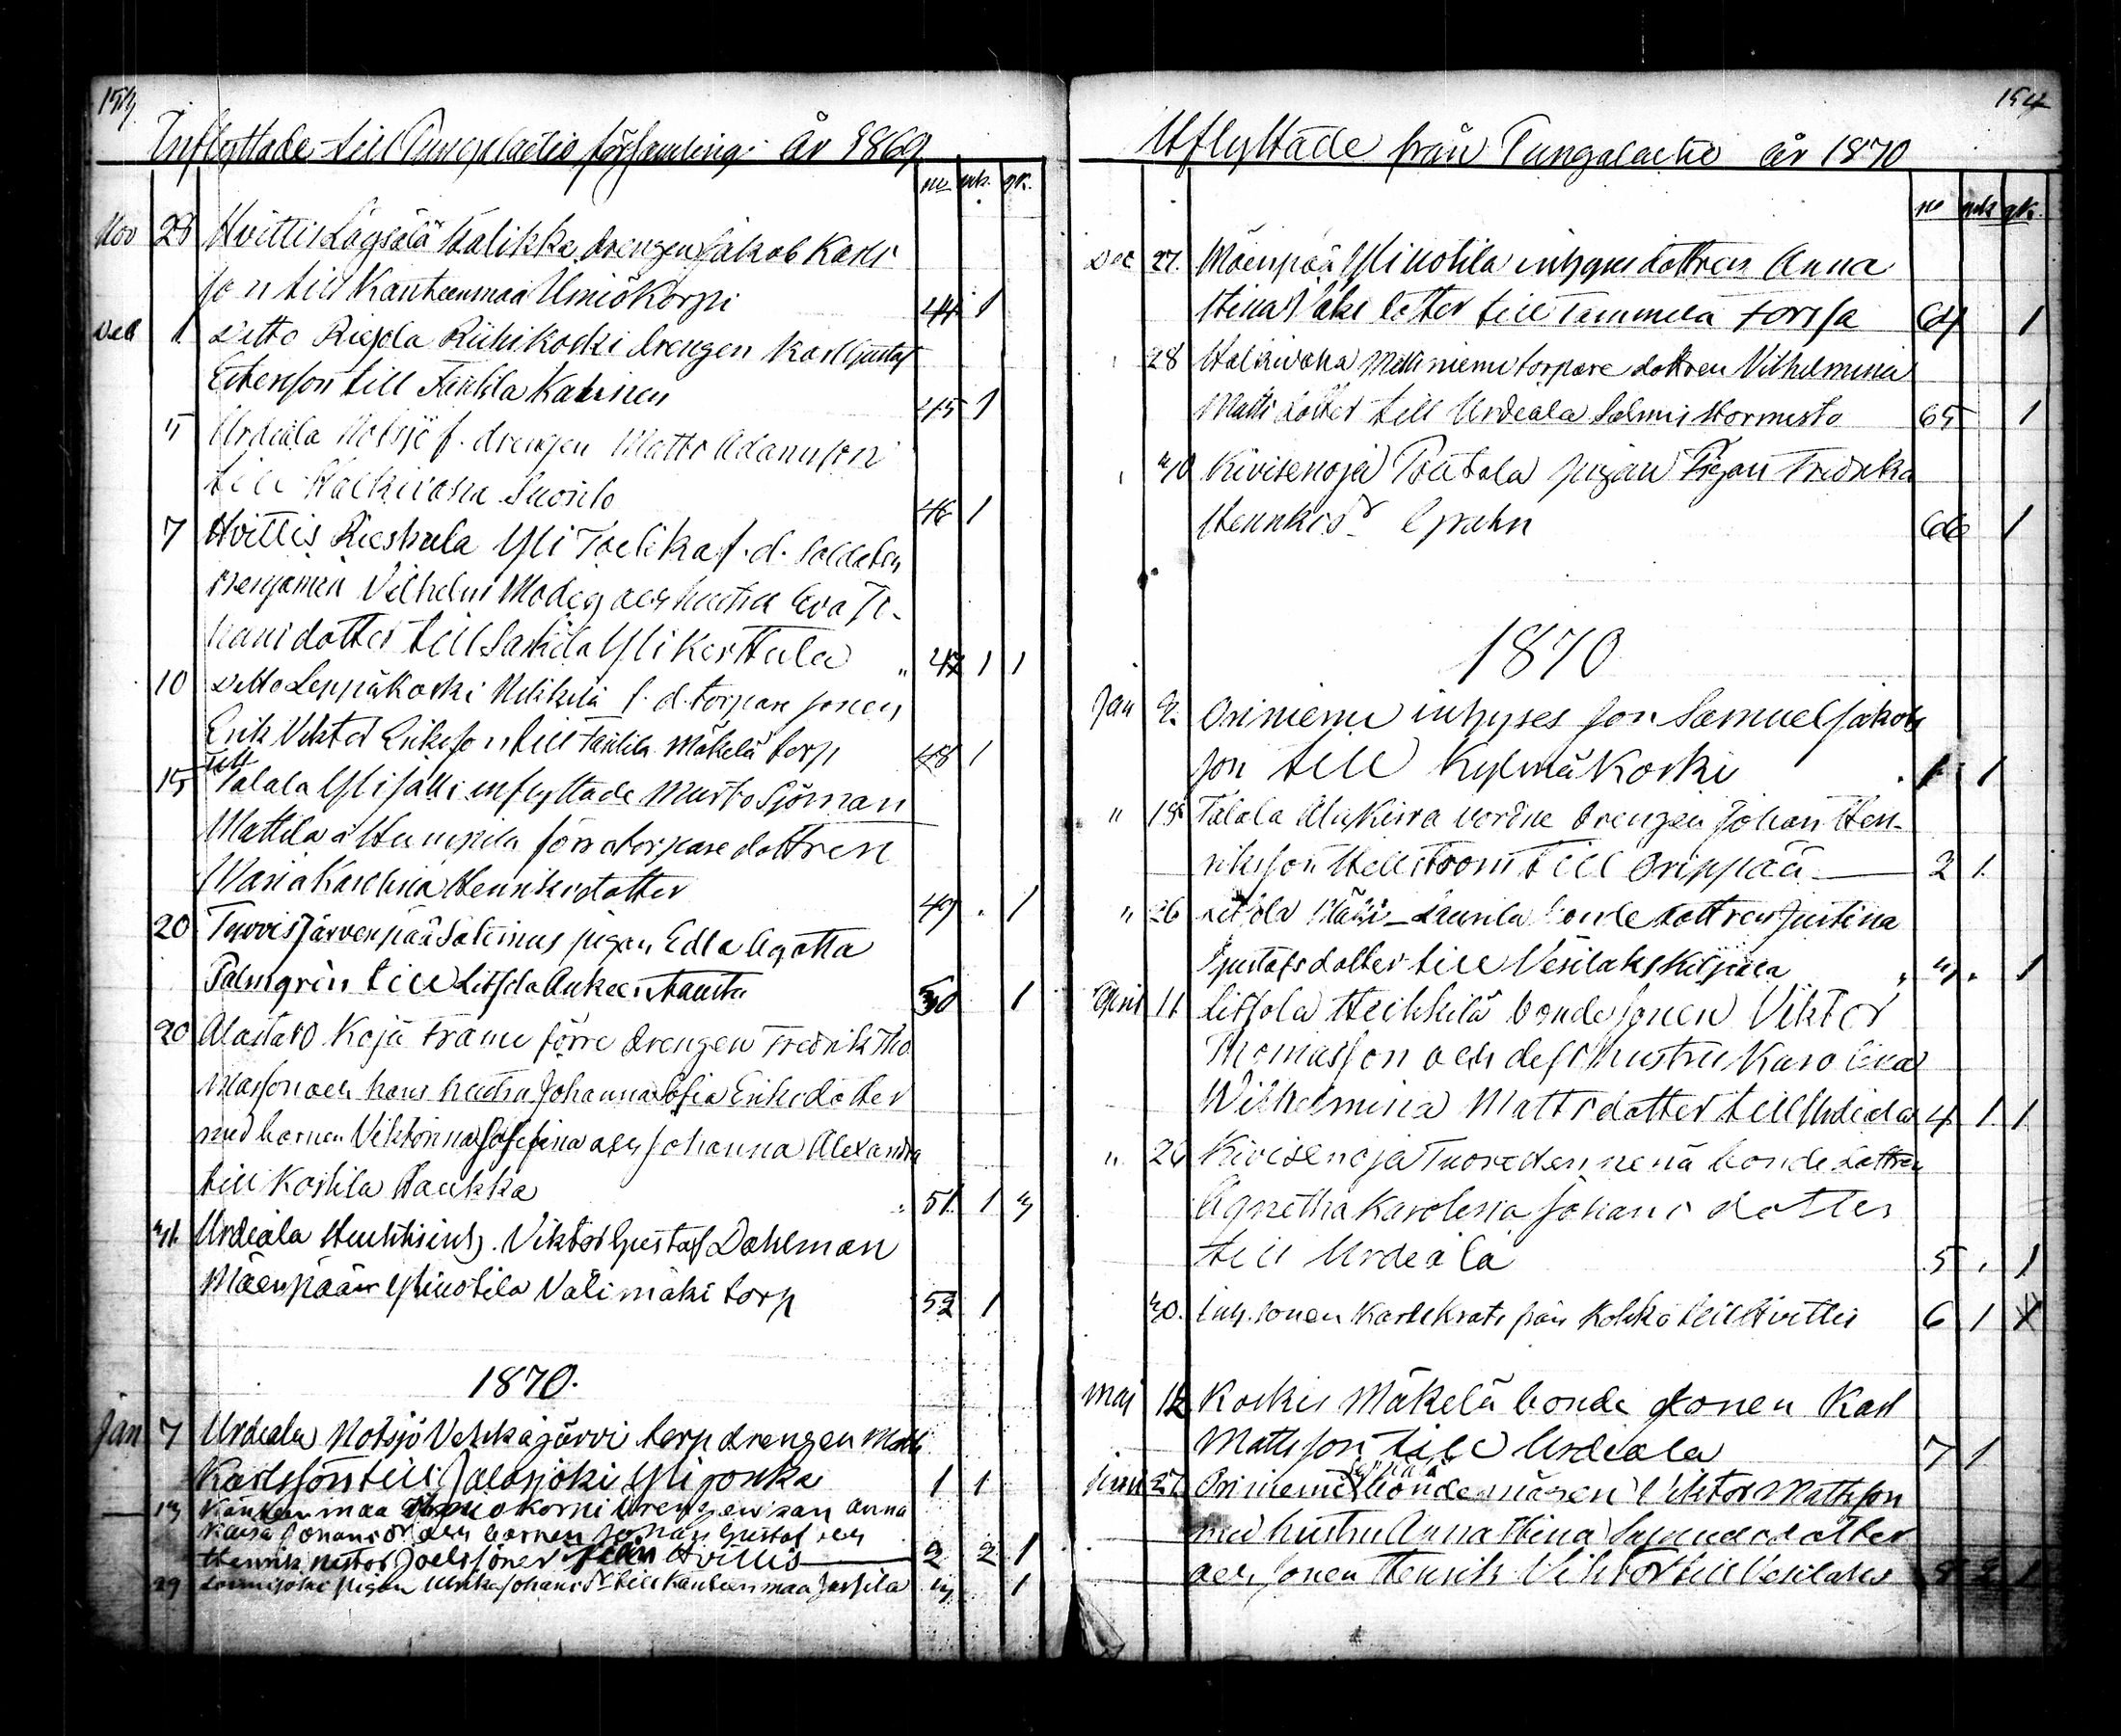 153
Inflyttade till Pungalaitio församling år 1869
no mk. qk.
Nov 28 Hvittis Lögsälä Kalikka drengen Jakob Karls
son till Kanteenmaa Uniökorpi 44 1
Deb 1 Ditto Riesola Riihikoski drengen Karl Gustaf
Erikson till Fäntilä 45 1
5 Urdiala Notsjö f. drengen Matts Adamsson
till Halkivaha Suonto 46 1
7 Hvittis Rieskala Yli Toelika f.d. Soldaten
Benjamin Vilhelm Modig och hustru Eva Jo-
hansdotter till Sarkila Yli Kerttula 47 1 1
10 Ditto Leppäkoski Mikkilä f.d. torpare sonen
Erik Viktor Eriksson till Fäntilä Mäkelä torp 48 1
15 Talala Yli Jalli inflyttade Murto Sjöman
Mattila å Humpila förra torpare dottren
Maria Karolina Henriksdotter 49 . 1
20 Turvis Järvenpää Salimus pigan Edla Agatta
Palmgrén till Liesola Ankeen 50 1
20 Alastaro Koja Frame förre drengen Fredrik Tho
masson och hans hustru Johanna Sofia Eriksdotter
med barnen Viktorina Josefina och Johanna Alexandra
till Kostila Haukka 51. 1 3
31 Urdiala Huhtis inh. Viktor Gustaf Dahlman
Mäenpään Yliuotila Välimäki torp 52 1
1870.
Jan 7 Urdiala Notsjö Vehkajärvi torp drengen Matts
Karlsson till Jalasjoki Yli Jonka 1 1
13 Kanteenmaa korpi drengen san Anna
Kaisa Johansdr och barnen Johan Gustaf och
Henrik Nestor Joelssöner från Hvittis 2 2 1
29 Loimijoki pigan Ulrika Johansdr till Kanteenmaa Jussila 3 1
154
Utflyttade från Pungalaitio år 1870
no mk qk.
Dec 27. Mäenpää Yliuotila inhyses dottren Anna
Stina dotter till Tammela Forssa 64 1
" 28 Halkivaha Mellniemi torpare dottren Vilhelmina
Matts dotter till Urdiala Salmis Hormisto 65 1
" 30 Kivisenoja Poutala pigan Pigan Fredrika
Henriksdr Grahn 66 1
1870
Jan 2. Oriniemi inhyses son Samuel Jakobs
son till Kylmäkoski 1 1
" 15 Talala Ala Kisra vordne drengen Johan Hen-
riksson Hellström till Orippää 2 1.
" 26 Liesola Laurila bonde dottren Justina
Gustafsdotter till Vesilaks 3 . 1
April 11 Liesola Heikkilä bonde sonen Viktor
Thomasson och dess hustru Karolina
Wilhelmina Mattsdotter till Urdiala 4 1 1
" 26 Kivisenoja Tuoredennenä bonde dottren
Agnetha Karolina Johans dotter
till Urdiala 5 . 1
30. Inh. sonen Karl från Kokko till Hvittis 6 1
Maj 12 Koskis Mäkelä bonde sonen Karl
Mattsson till Urdiala 7 1
Juni 27 Oriniemi Seppälä bonde mågen Viktor Mattsson
med hustru Anna Stina Samuelsdotter
och sonen Henrik Viktor till Vesilaks 8 2 1